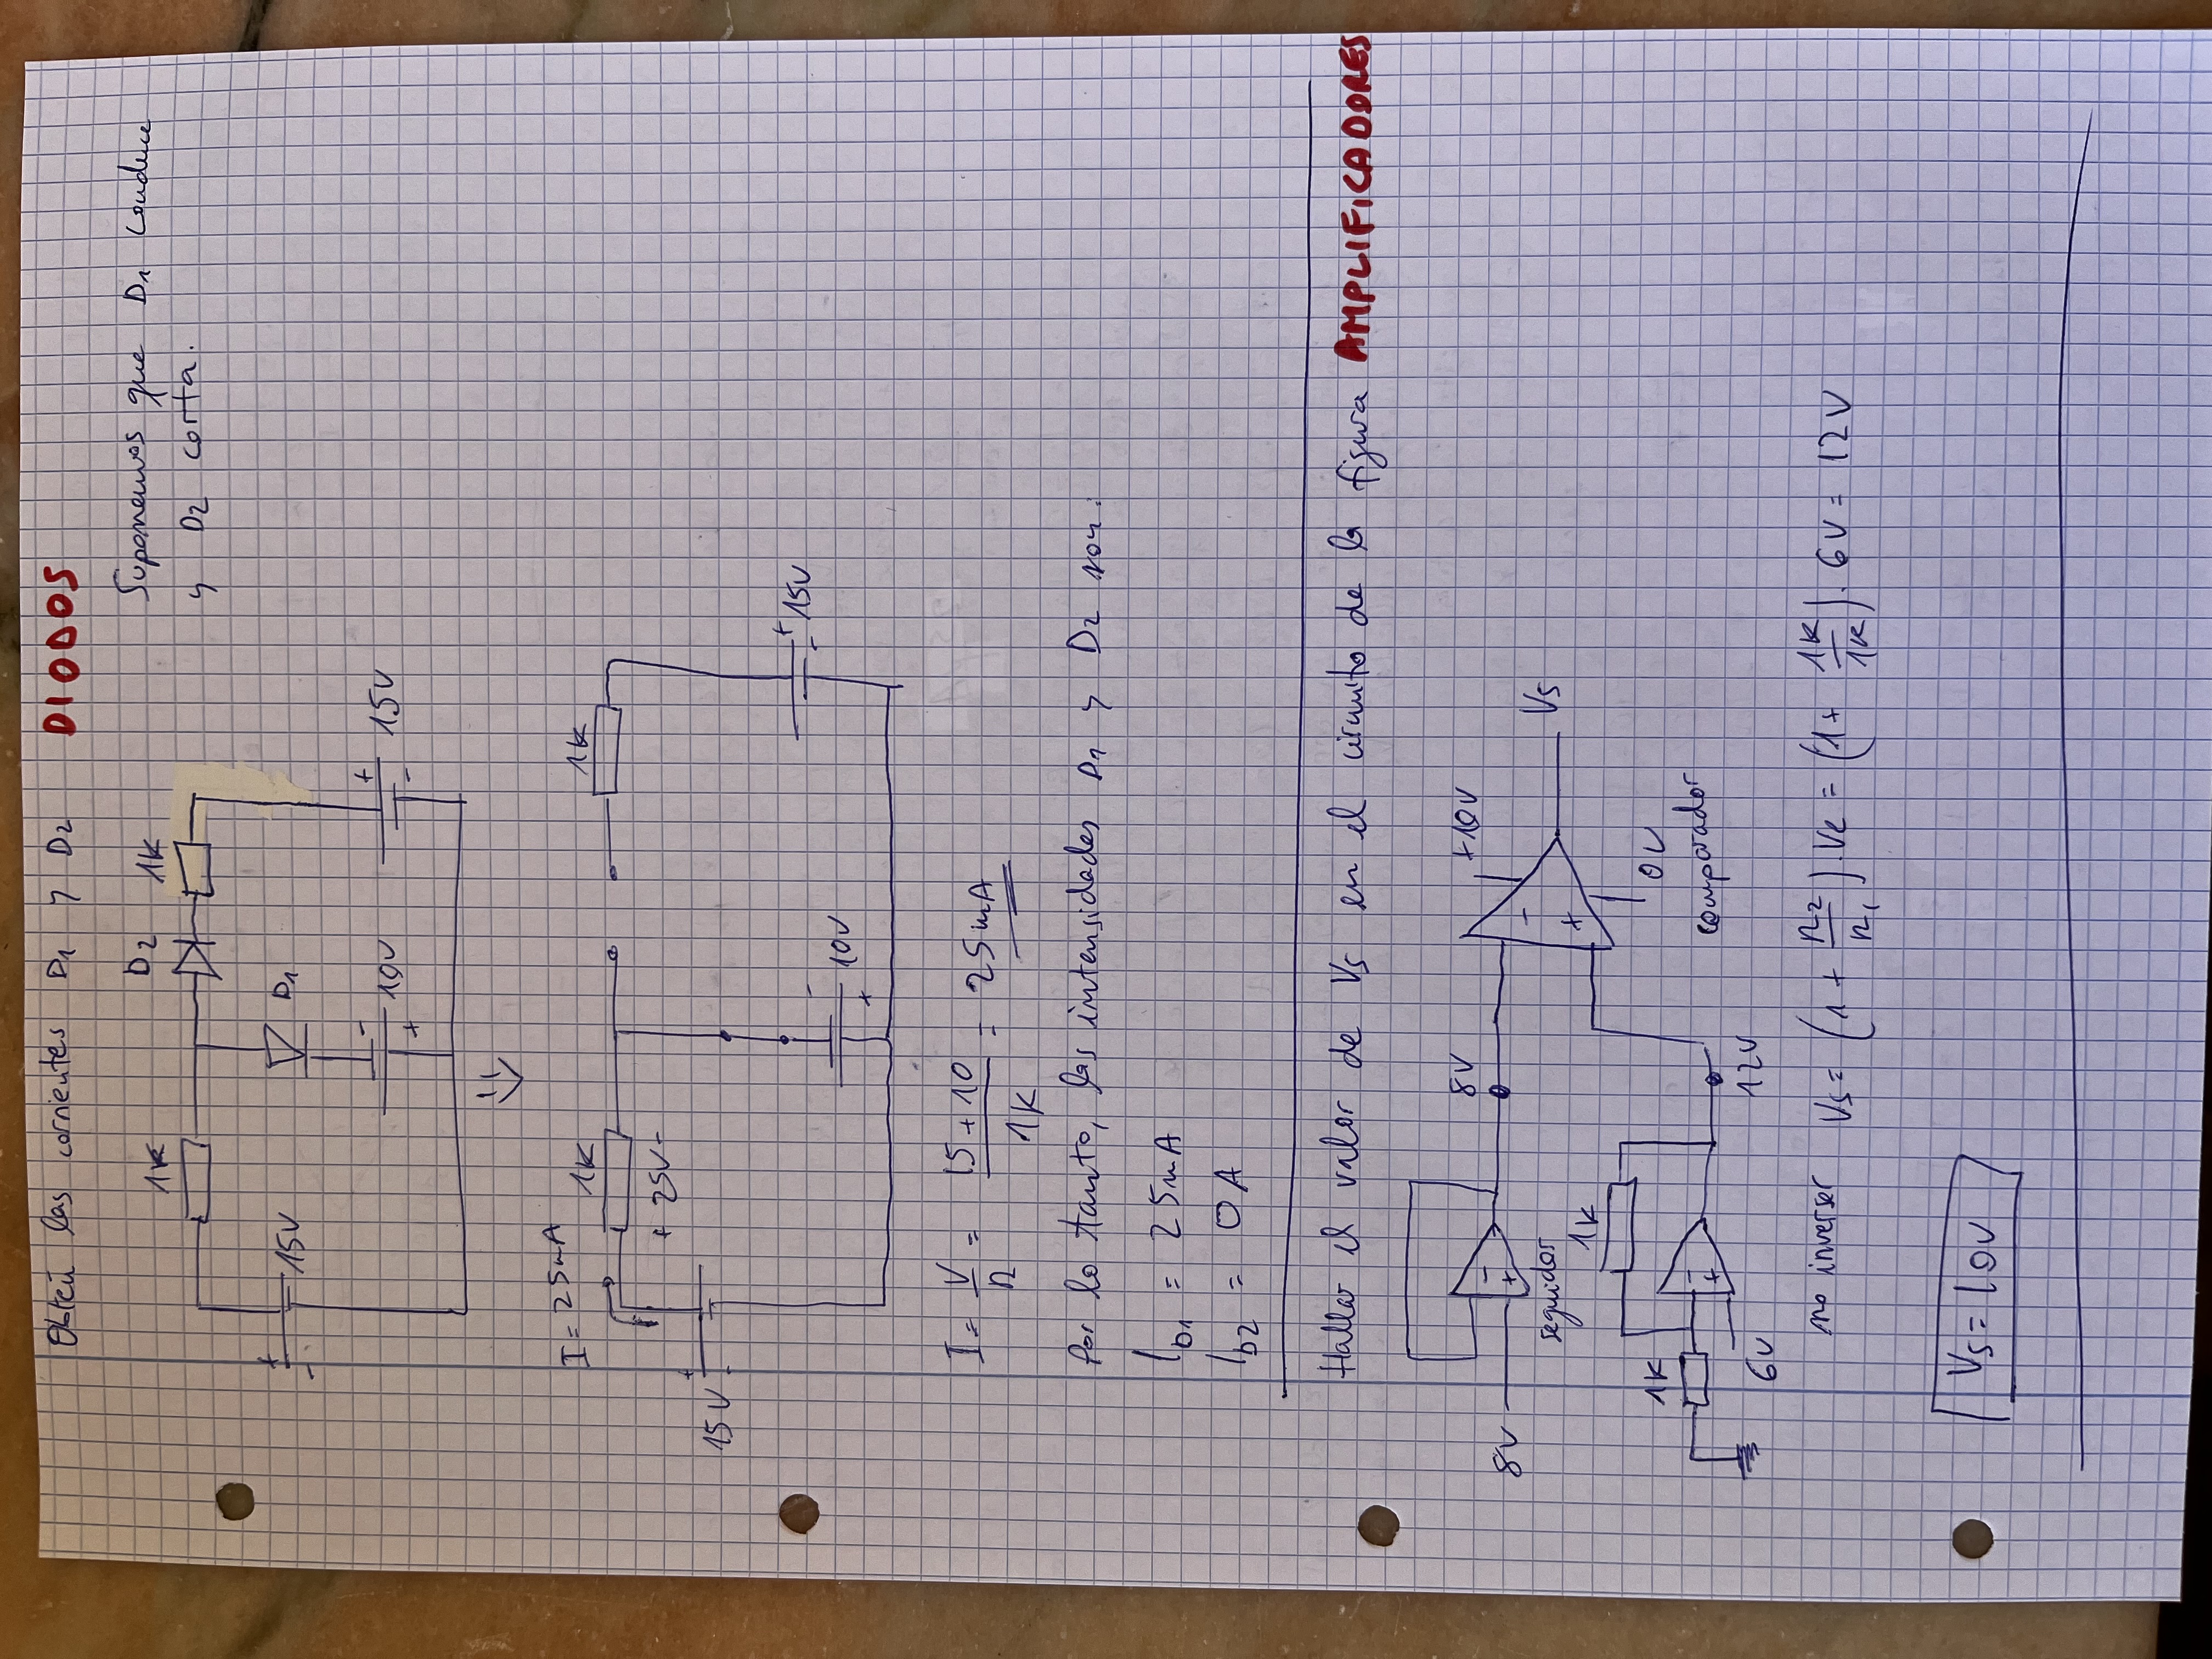 Obtén las corrientes D1 y D2 DIODOS
Suponemos que D1 conduce
y D2 corta.
D2
1K
1K
+
-
15V
D1
-
10V
+
+
15V
-
I = 25mA
1K
1K
+ 25V -
+
15V
-
-
10V
+
+
15V
-
I = V/R = 15+10/1K = 25mA
Por lo tanto, las intensidades D1 y D2 son:
ID1 = 25mA
ID2 = 0A
Hallar el valor de Vs en el circuito de la figura AMPLIFICADORES
8V
+10V
-
+
8V
-
+
Vs
seguidor
1K
0V
1K
-
+
comparador
6V
12V
no inversor Vs = (1 + R2/R1).Ve = (1 + 1K/1K). 6V = 12V
Vs = 10V